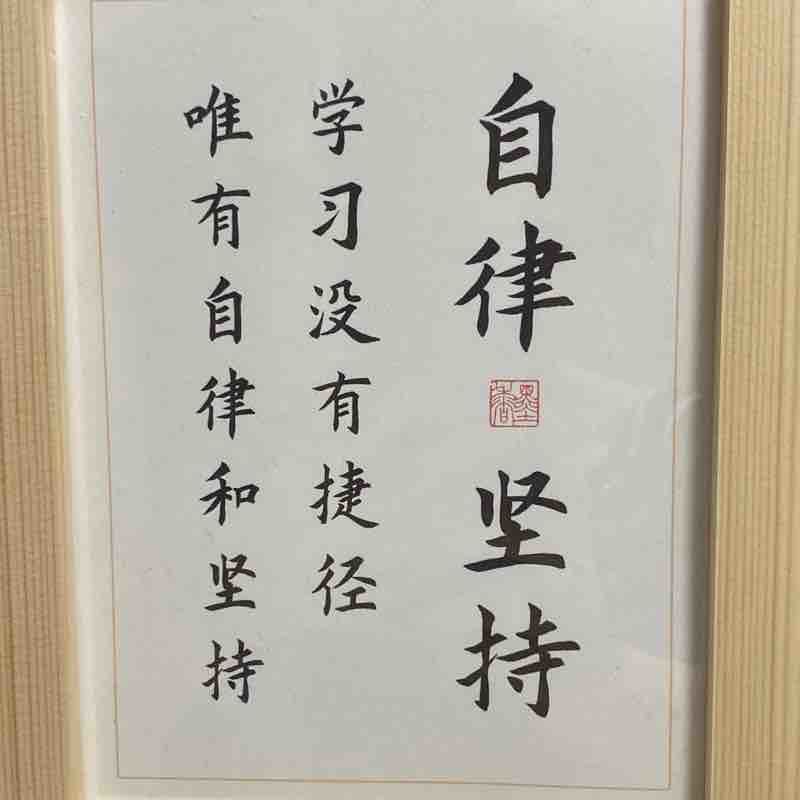 自律
墨香
坚持
学习没有捷径
唯有自律和坚持